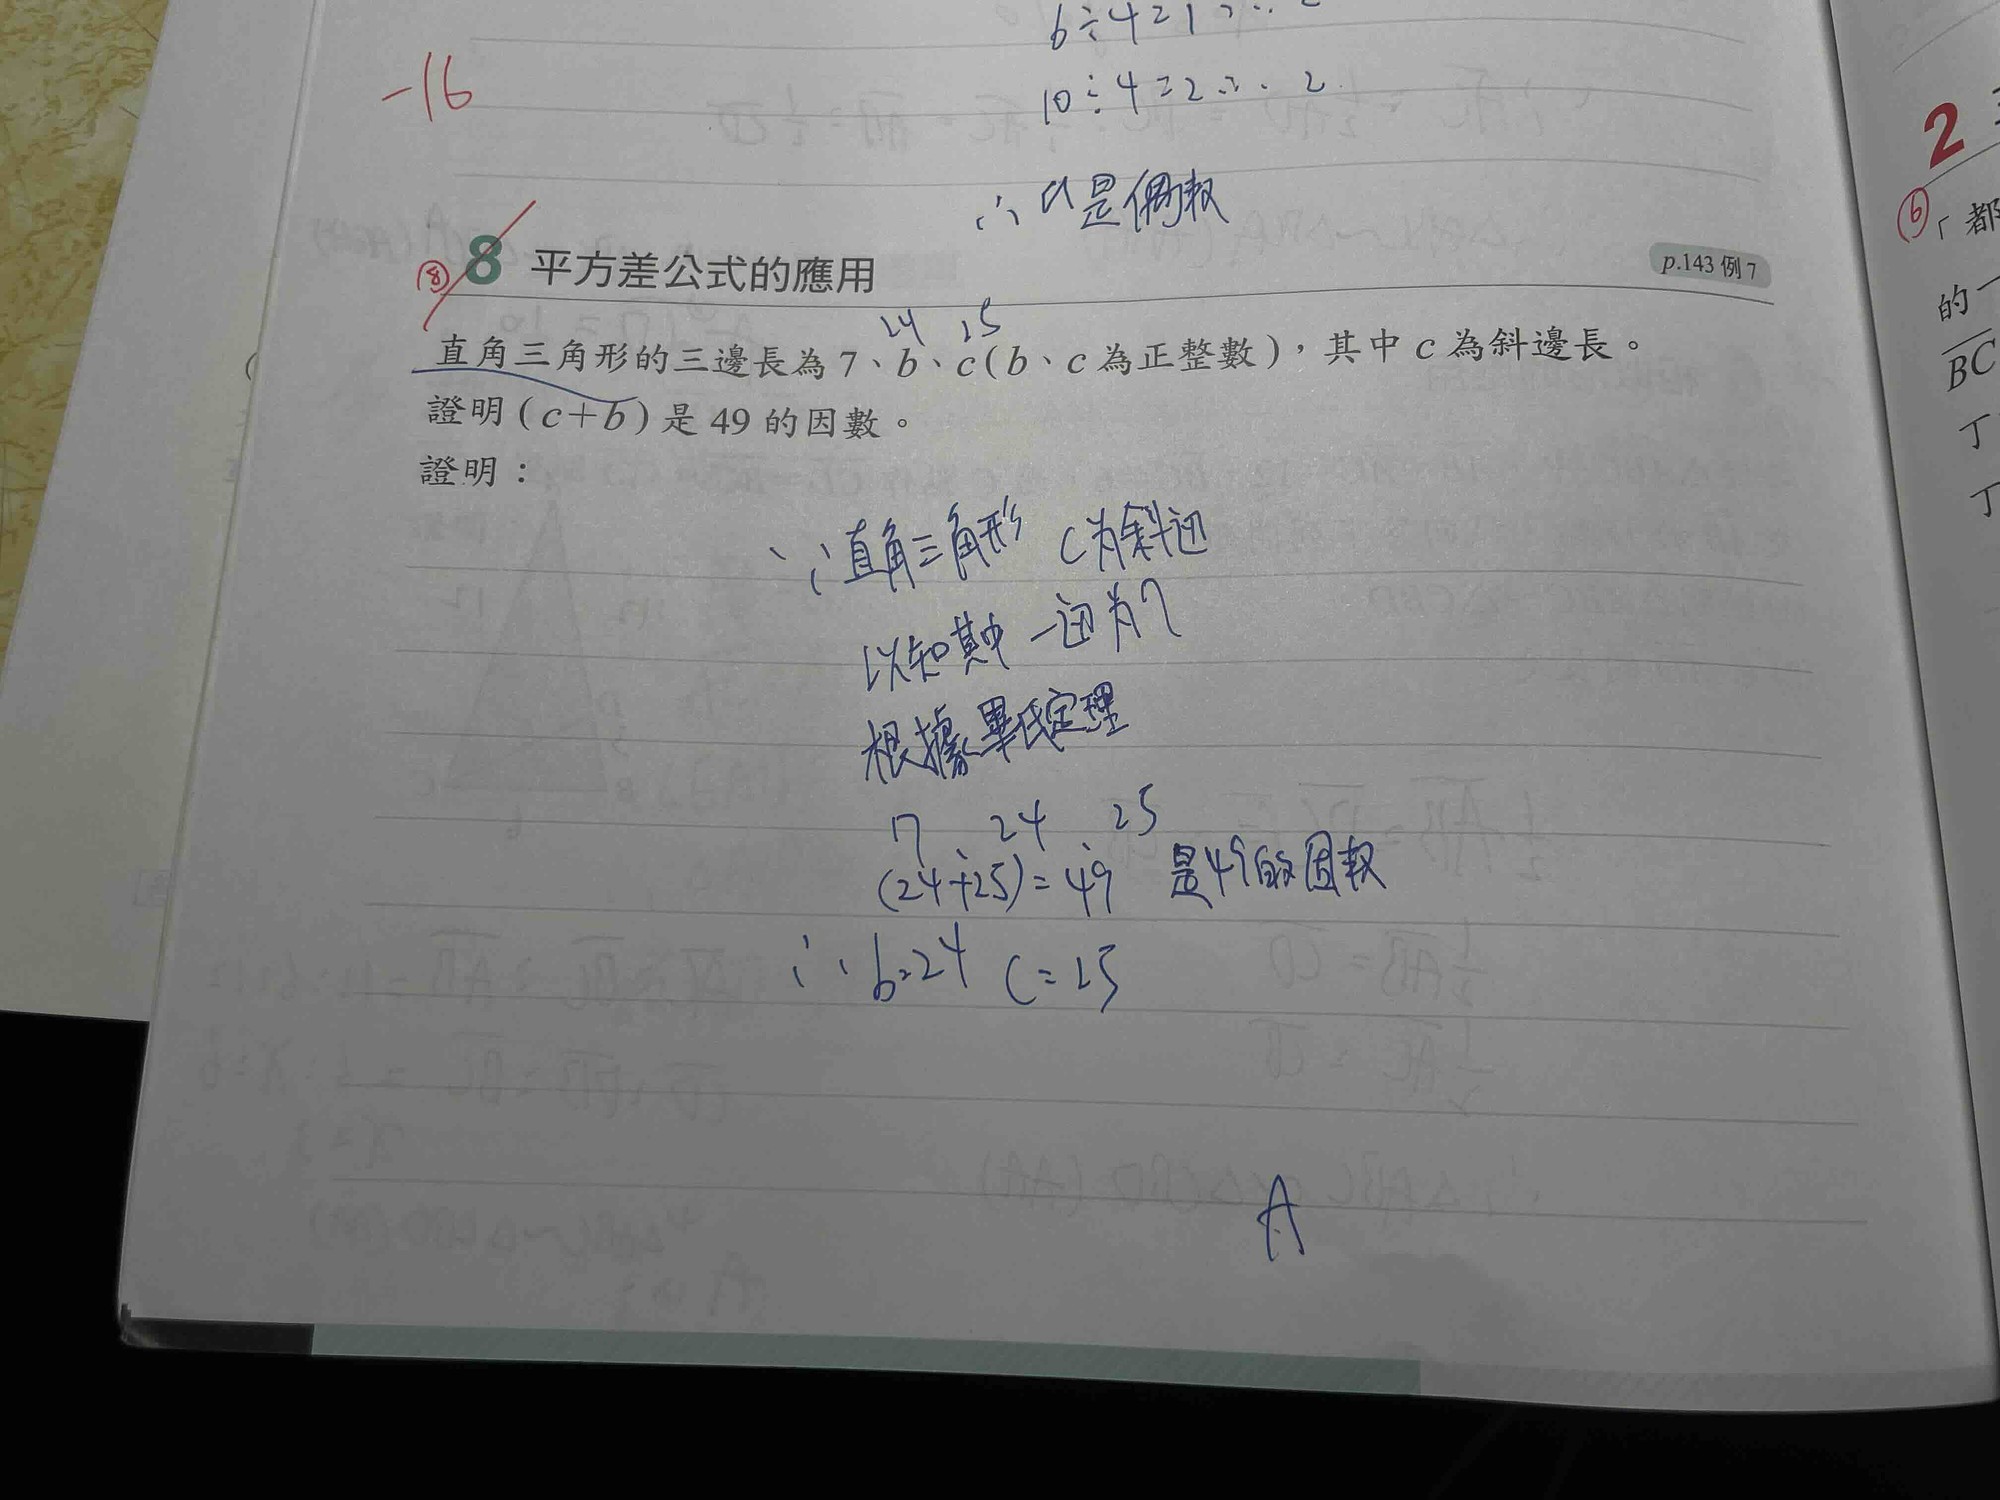 6÷4=1…2
10÷4=2…2
-16
∴a是偶数
⑧ 8 平方差公式的應用 p.143 例 7
24 25
直角三角形的三邊長為 7、b、c(b、c 為正整數),其中 c 為斜邊長。
證明(c+b)是 49 的因數。
證明:
∵直角三角形 C为斜边
以知其中一边为7
根據畢氏定理
7、24、25
(24+25)=49 是49的因数
∴b=24 C=25
A
2
⑥「都
的一
BC
丁
丁